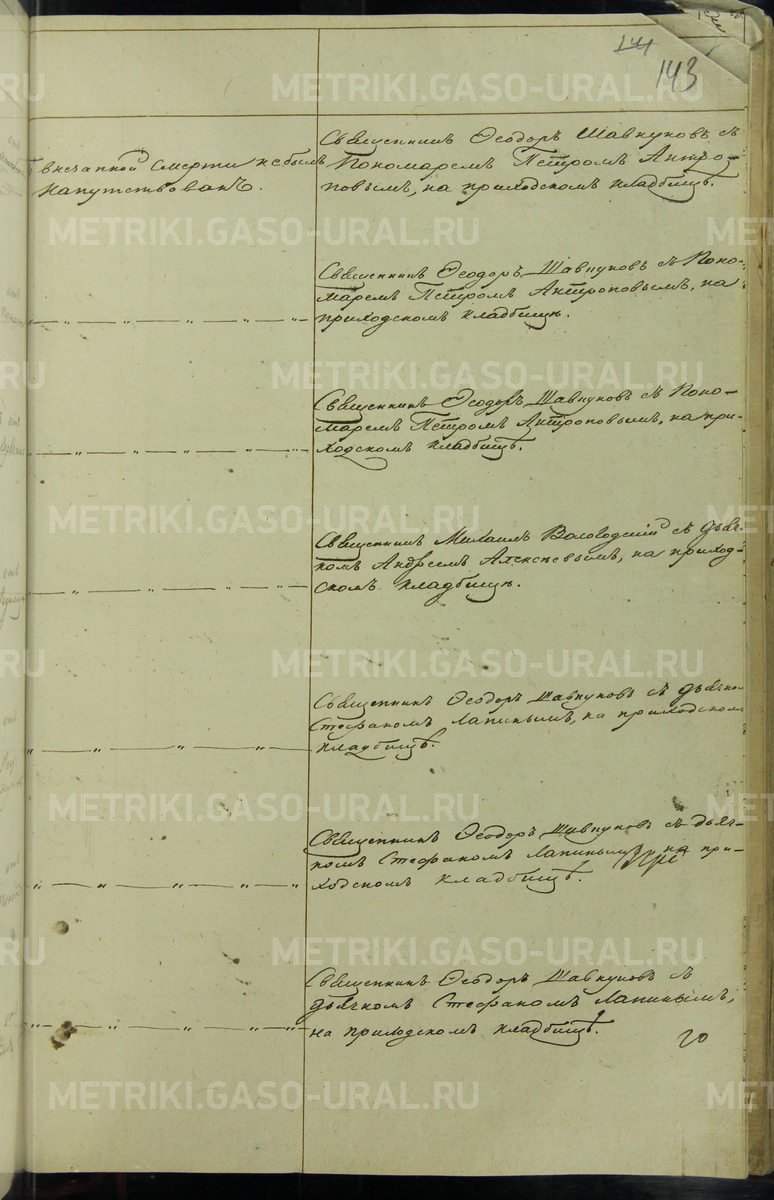 141
143
внезапной смерти небылъ
напутствованъ.
Священникъ Ѳеодоръ Шавкуновъ съ
Пономаремъ Петромъ Антро-
повымъ, на приходскомъ кладбищѣ.
Священникъ Ѳеодоръ Шавкуновъ съ Поно-
маремъ Петромъ Антроповымъ, на
приходскомъ кладбищѣ.
Священникъ Ѳеодоръ Шавкуновъ съ Поно-
маремъ Петромъ Антроповымъ, на при-
ходскомъ кладбищѣ.
Священникъ Михаилъ Вологодскій съ дьяч-
комъ Андреемъ Алексѣевымъ, на приход-
скомъ кладбищѣ.
Священникъ Ѳеодоръ Шавкуновъ съ дьячком
Стефаномъ Лапинымъ, на приходскомъ
кладбищѣ.
Священникъ Ѳеодоръ Шавкуновъ съ дьяч-
комъ Стефаномъ Лапинымъ, на при-
ходскомъ кладбищѣ.
Священникъ Ѳеодоръ Шавкуновъ съ
дьячкомъ Стефаномъ Лапинымъ,
на приходскомъ кладбищѣ.
METRIKI.GASO-URAL.RU